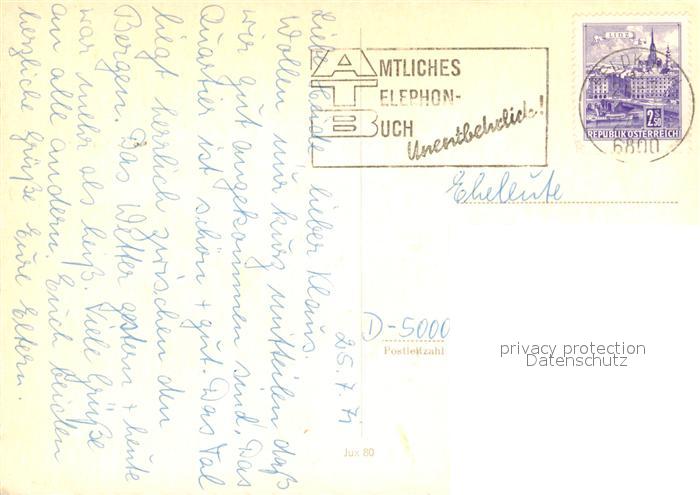 Liebe lieber Klaus.
Wollen nur kurz mitteilen daß
wir gut angekommen sind. Das
Quartier ist schön + gut. Das Tal
liegt herrlich zwischen den
Bergen. Das Wetter gestern + heute
war mehr als heiß. Viele Grüße
an alle andern. Euch beiden
herzliche Grüße Eure Eltern.
25.7.71
AMTLICHES
TELEPHON-
BUCH
Unentbehrlich!
LINZ
2.50
REPUBLIK ÖSTERREICH
6800
Eheleute
D-5000
Postleitzahl
privacy protection
Datenschutz
Jux 80